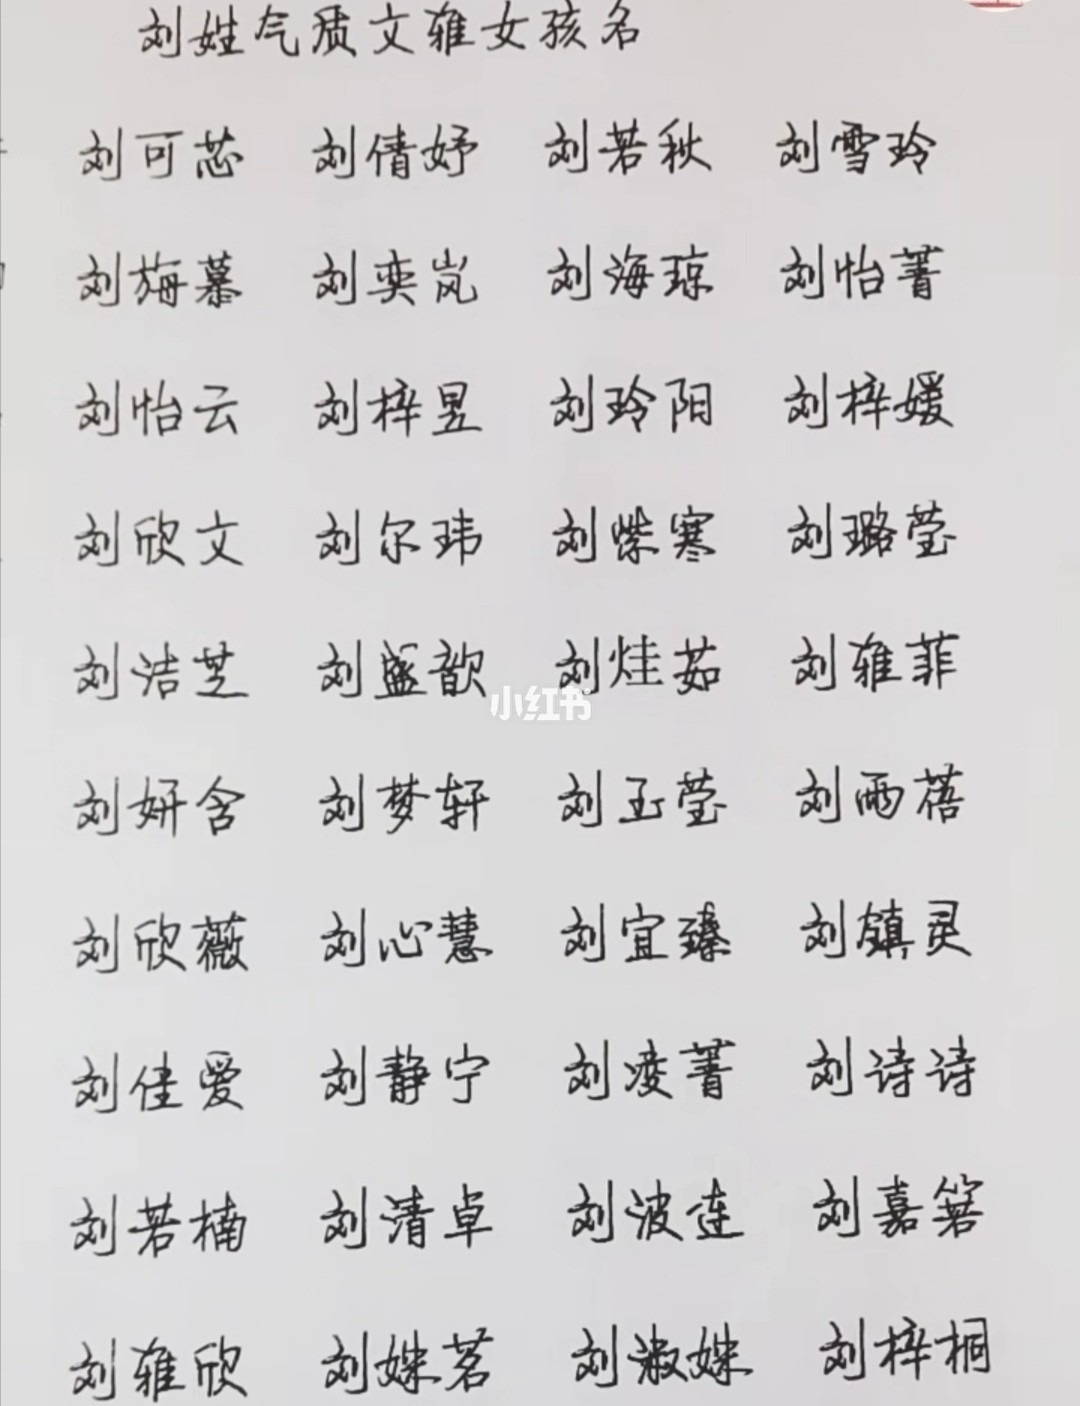 刘姓气质文雅女孩名
刘可芯 刘倩妤 刘若秋 刘雪玲
刘梅慕 刘奕岚 刘海琼 刘怡菁
刘怡云 刘梓昱 刘玲阳 刘梓媛
刘欣文 刘尔玮 刘紫寒 刘璐莹
刘洁芝 刘盛歆 刘烓茹 刘雅菲
小红书
刘妍含 刘梦轩 刘玉莹 刘雨蓓
刘欣薇 刘心慧 刘宜臻 刘镇灵
刘佳爱 刘静宁 刘凌菁 刘诗诗
刘若楠 刘清卓 刘波连 刘嘉箬
刘雅欣 刘姝茗 刘淑姝 刘梓桐